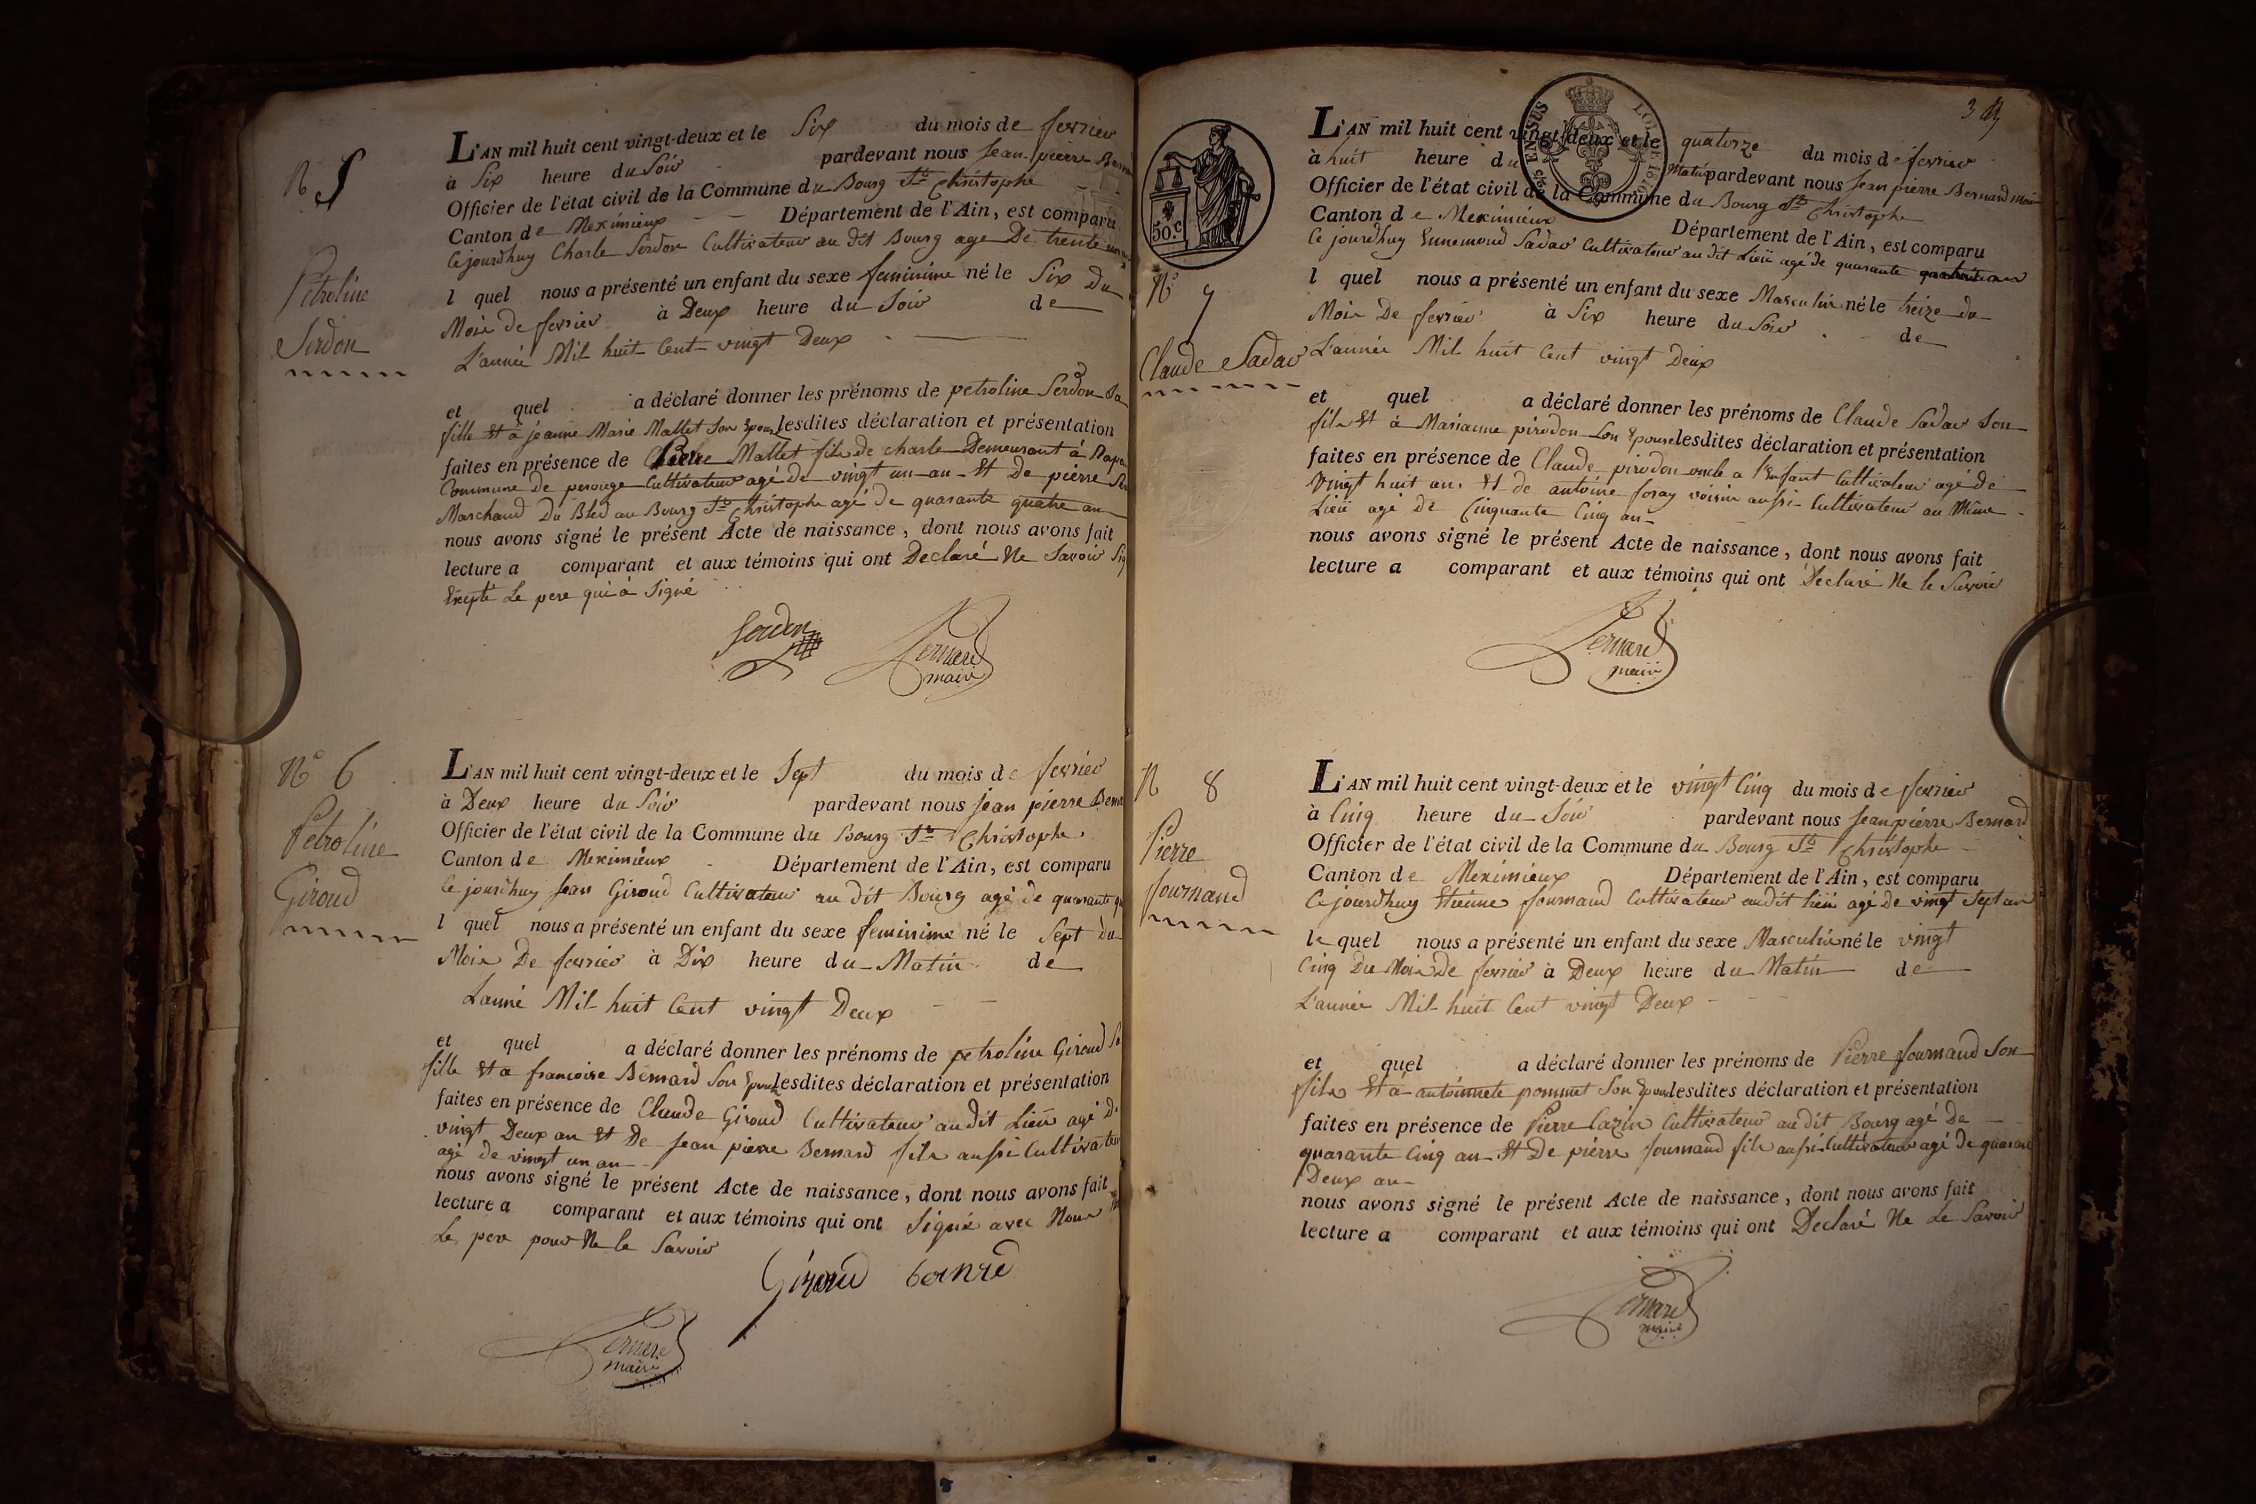 N 5
Petroline
Serdon
L'AN mil huit cent vingt-deux et le Six du mois de fevrier
à Six heure du Soir pardevant nous Jean-pierre
Officier de l'état civil de la Commune du Bourg St Christophe
Canton de Meximieux Département de l'Ain, est comparu
Ce jourdhuy Charle Serdon Cultivateur au dit Bourg age De trente
l quel nous a présenté un enfant du sexe feminine né le Six Du
Mois de fevrier à Deux heure du Soir de
L'année Mil huit Cent vingt Deux
et quel a déclaré donner les prénoms de petroline Serdon Sa
fille Et à jeanne Marie Mallet Son Epouse lesdites déclaration et présentation
faites en présence de Pierre Mallet fils de charle Demeurant à
Commune de perouge Cultivateur agé de vingt un an Et De pierre
Marchand Du Bled au Bourg St Christophe agé de quarante quatre an
nous avons signé le présent Acte de naissance, dont nous avons fait
lecture a comparant et aux témoins qui ont Declaré Ne Savoir
Excepté Le pere qui à Signé
Serdon Bernard
maire
No 6
Petroline
Giroud
L'AN mil huit cent vingt-deux et le Sept du mois de fevrier
à Deux heure du Soir pardevant nous jean pierre
Officier de l'état civil de la Commune du Bourg St Christophe
Canton de Meximieux Département de l'Ain, est comparu
Ce jourdhuy Jean Giroud Cultivateur au dit Bourg agé de quarante
l quel nous a présenté un enfant du sexe feminime né le Sept du
Mois De fevrier à Dix heure du Matin de
L'anné Mil huit Cent vingt Deux
et quel a déclaré donner les prénoms de petroline Giroud Sa
fille Et a francoise Bernard Son Epouse lesdites déclaration et présentation
faites en présence de Claude Giroud Cultivateur audit Lieu agé De
vingt Deux an Et De Jean pierre Bernard fils aussi Cultivateur
agé de vingt un an
nous avons signé le présent Acte de naissance, dont nous avons fait
lecture a comparant et aux témoins qui ont Signé avec Nous
Le pere pour Ne le Savoir
Giroud bernrd
Bernard
maire
3
50.c
CENSUS
LOI DE 1816
N° 7
Claude Sadav
L'AN mil huit cent vingt-deux et le quatorze du mois de fevrier
à huit heure du Matin pardevant nous Jean pierre Bernard
Officier de l'état civil de la Commune du Bourg St Christophe
Canton de Meximieux Département de l'Ain, est comparu
Ce jourdhuy Ennemond Sadav Cultivateur au dit Lieu agé de quarante
l quel nous a présenté un enfant du sexe Masculin né le treize du
Mois De fevrier à Six heure du Soir de
L'année Mil huit Cent vingt Deux
et quel a déclaré donner les prénoms de Claude Sadav Son
fils Et à Marianne pirodon Son Epouse lesdites déclaration et présentation
faites en présence de Claude pirodon oncle a l'Enfant Cultivateur agé de
Vingt huit an. Et de antoine foray voisin aussi Cultivateur au Même
Lieu agé de Cinquante Cinq an
nous avons signé le présent Acte de naissance, dont nous avons fait
lecture a comparant et aux témoins qui ont Declaré Ne le Savoir
Bernard
maire
N 8
Pierre
fournand
L'AN mil huit cent vingt-deux et le vingt Cinq du mois de fevrier
à Cinq heure du Soir pardevant nous Jean pierre Bernard
Officier de l'état civil de la Commune du Bourg St Christophe
Canton de Meximieux Département de l'Ain, est comparu
Ce jourdhuy Etienne fournand Cultivateur audit lieu agé de vingt Sept an
le quel nous a présenté un enfant du sexe Masculin né le vingt
Cinq Du Mois De fevrier à Deux heure du Matin de
L'année Mil huit Cent vingt Deux
et quel a déclaré donner les prénoms de Pierre fournand Son
fils Et à antoinnete pommet Son Epouse lesdites déclaration et présentation
faites en présence de Pierre Cazin Cultivateur au dit Bourg agé De
quarante Cinq an Et De pierre fournand fils aussi Cultivateur agé de quarante
Deux an
nous avons signé le présent Acte de naissance, dont nous avons fait
lecture a comparant et aux témoins qui ont Declaré Ne Le Savoir
Bernard
maire